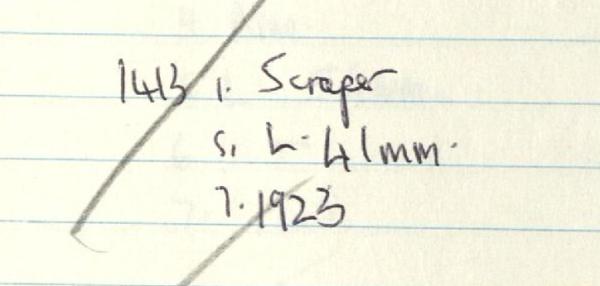 1413 1. Scraper
5. L. 41mm.
7. 1923